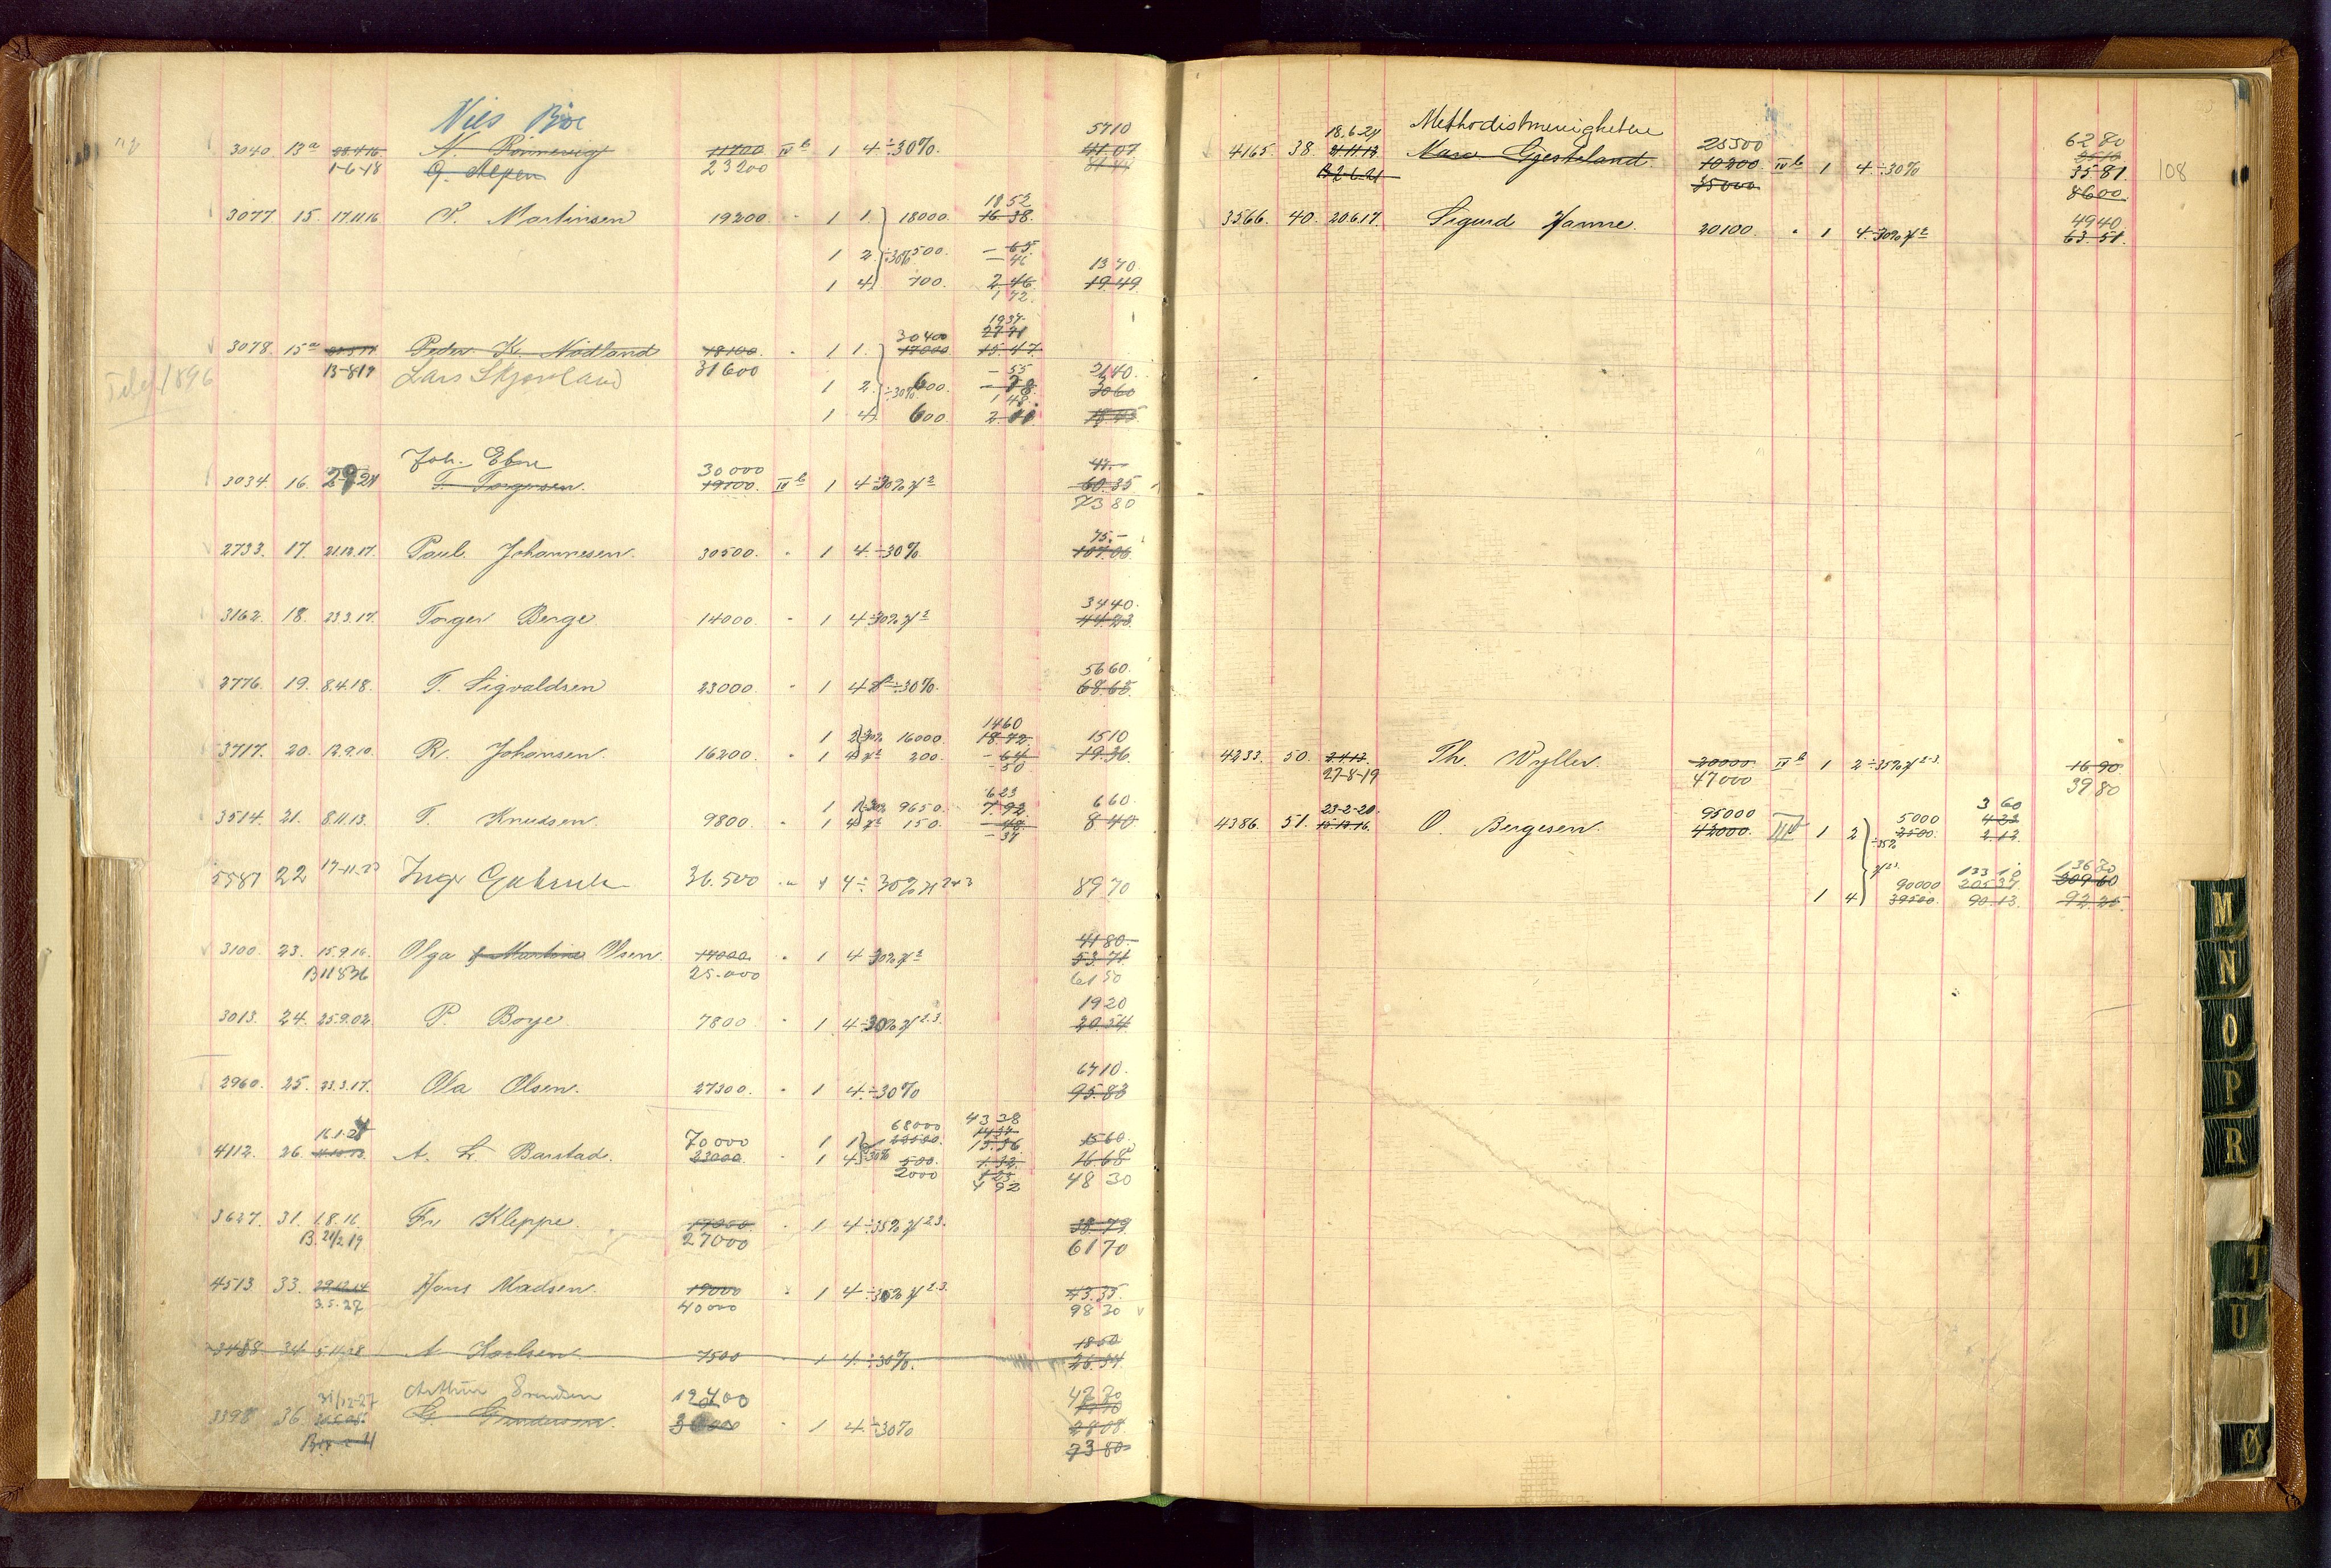 Nils Bøe
3040. 13a 28.4.16 N. Rönnevig 11700 IVb 1 4 ÷30%. 5710 41 07
1-6-18 G. Alpen 23200
3077. 15. 17.11.16 T. Martinsen 19200. " 1 1. 18000. 18 52 16 38.
1 2. ÷30% 500. – 65 – 46
1 4. 700. 2 46 1 72 13 70 19.49
3078. 15a Peder K. Nödland 18100. " 1 1. 30400 17000 1937. 27 71 15.47
13-8-19 Lars Skjæveland 31600 – 55 21 40.
Feby 1896
1 2. ÷30% 600. 1 48 30 60
1 4. 600. 18.45
Joh. Ebne 30000
3034. 16. T. Torgersen. 19800. IVb 1 4 ÷30% 60.35
73 80
2733. 17. 21.12.17. Paul Johannesen. 30500. " 1 4. ÷30% 75.– 107.06
3162. 18. 23.3.17. Torger Berge 14000. " 1 4 ÷30% 34 40. 44.23
2776. 19. 8.4.18. T. Sigvaldsen 23000. " 1 4 ÷30%. 56 60. 68.65
3717. 20. 12.9.10. R. Johansen. 16200. " 1 2 30% 16000. 14 60 18.72 15 10
1 4 200. – 64 – 50 19.36
3514. 21. 8.11.13. T. Knudsen. 9800. " 1 1 30% 9650. 6 23 7.92 6 60.
1 4 150. – 48 – 37 8 40
5581 22 17-11-23 36.500 " 1 4 ÷ 30% 2+3 89 70
3100. 23. 15.9.16. Olga & Martine Olsen. 17000. " 1 4 30% 41 80. 53.71
25.000 61 50
3013. 24. 25.9.02 P. Boye 7800. " 1 4 ÷30% 2.3. 19 20 20.54
2960. 25. 23.3.17. Ola Olsen. 27300. " 1 4. ÷30% 67 10. 95.83
16.1.24 70000 68000 43 38
4112. 26. A. L. Barstad. 23000. " 1 1 13.36 15 60.
1 4 ÷30% 500. 1.32 16.68
2000 4 92 48 30
3627. 31. 1.8.16. Fr. Kleppe. 17000 " 1 4 ÷35% 2.3. 38.79
B. 21/2 19 27000 61 70
4513 33. 29.12.14 Hans Madsen. 19000 " 1 4 ÷30% 2.3. 43.35.
3.5.27 40000 98 30
3488 34 5.11.18 A. Karlsen. 7500 " 1 4. ÷30%. 18 50 26.34.
31/12-27 Arthur 19400 47 70
3398 36. G. Gundersen. " 1 4. ÷30% 28 08.
73 80
18.6-24 Methodistmenigheten 25500 62 80
4165. 38. 21.11.13 Gjesteland. 10200 IVb 1 4. ÷30% 35.81
B 2-6-21 35000 86 00
3566. 40. 20.6.17. Sigurd Hanne. 20100. " 1 4. ÷30% 49 40 63.51.
108
4233. 50. 2.4.13. Th. Wyller. 20000 IVb 1 2 ÷35% 2-3. 16 90
27-8-19 47000 39 80
23-2-20 95000 5000 3 60
4386. 51. 15.12.16. O. Bergesen. 42000. 1 2 ÷35% 2500. 4 22 2.12
133 10 136 70
90000 205 37 309 60
1 4 39500. 90.13. 92.25
M
N
O
P
R
T
U
Ø